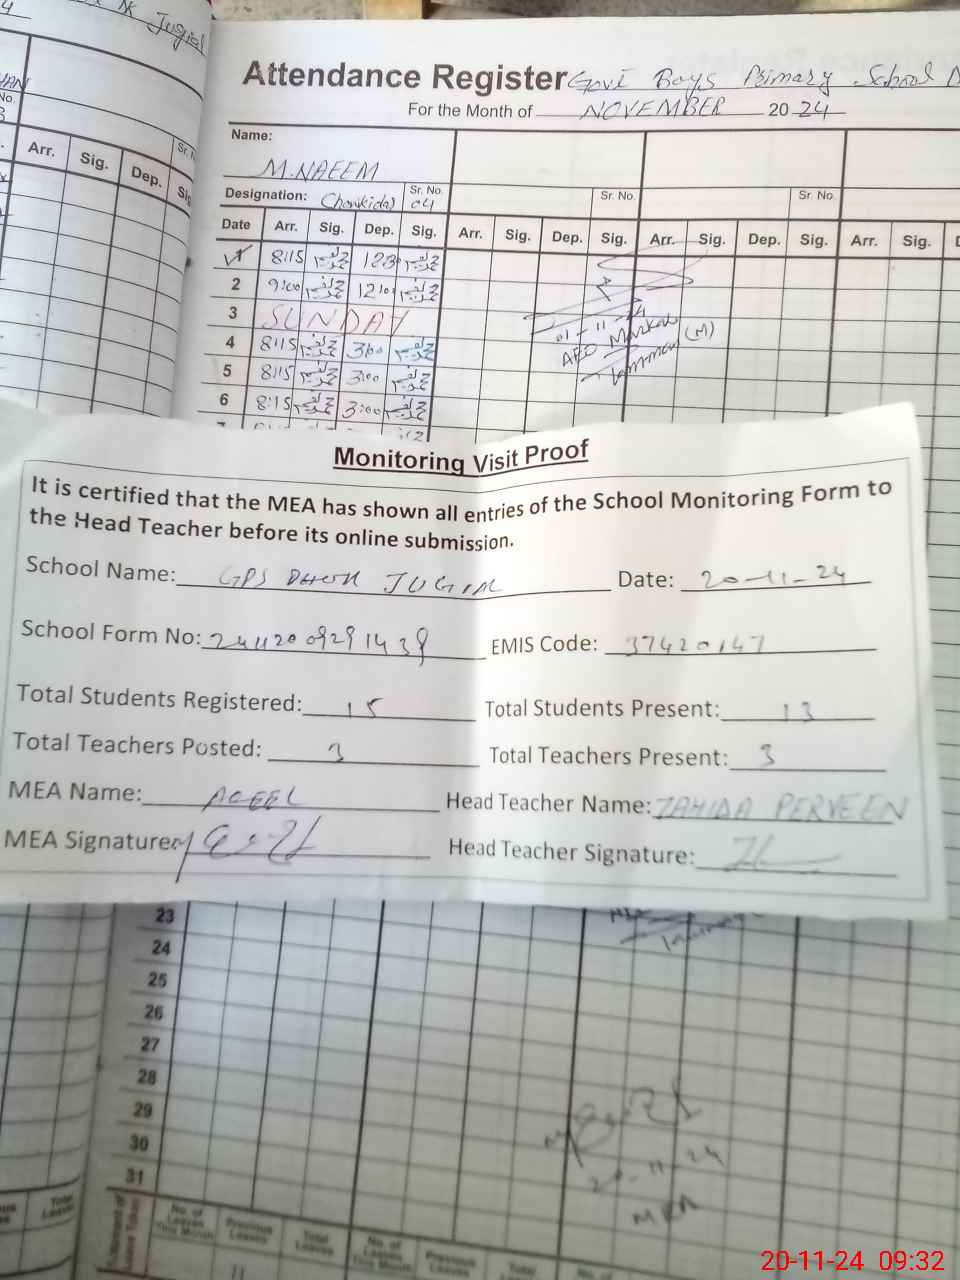 Attendance Register Govt Boys Primary School D
For the Month of NOVEMBER 20 24
Name:
M. NAEEM
Designation: Chowkidar Sr. No. 04
Sr. No. Sr. No.
Date Arr. Sig. Dep. Sig. Arr. Sig. Dep. Sig. Arr. Sig. Dep. Sig. Arr. Sig.
Arr. Sig. Dep.
1 8:15
2 9:00 12:0
3 SUNDAY
4 8:15 3:00
5 8:15 3:00
6 8:15 3:00
01-11-24
AEO Markaz
(M)
Monitoring Visit Proof
It is certified that the MEA has shown all entries of the School Monitoring Form to
the Head Teacher before its online submission.
School Name: GPS DHOK JUGIAL Date: 20-11-24
School Form No: EMIS Code: 37420147
Total Students Registered: 15 Total Students Present: 13
Total Teachers Posted: 3 Total Teachers Present: 3
MEA Name: AQEEL Head Teacher Name: ZAHIDA PERVEEN
MEA Signature Head Teacher Signature:
23
24
25
26
27
28
29
30
31
20-11-24
MEA
No. of Leaves This Month Previous Leaves Total Leaves No. of Leaves This Month Previous Leaves Total Leaves No. of
20-11-24 09:32